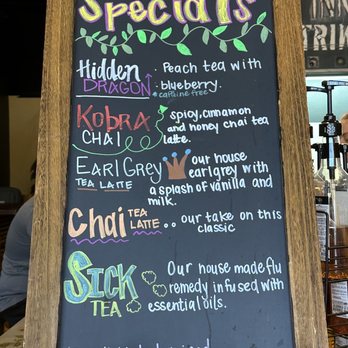 Specials
Hidden
DRAGON
Peach tea with
blueberry.
*caffeine free*
KOBRA
CHAI
spicy, cinnamon
and honey chai tea
latte.
EARL GREY
TEA LATTE
our house
earl grey with
a splash of vanilla and
milk.
Chai TEA
LATTE..
our take on this
classic
SICK
TEA
Our house made flu
remedy infused with
essential oils.